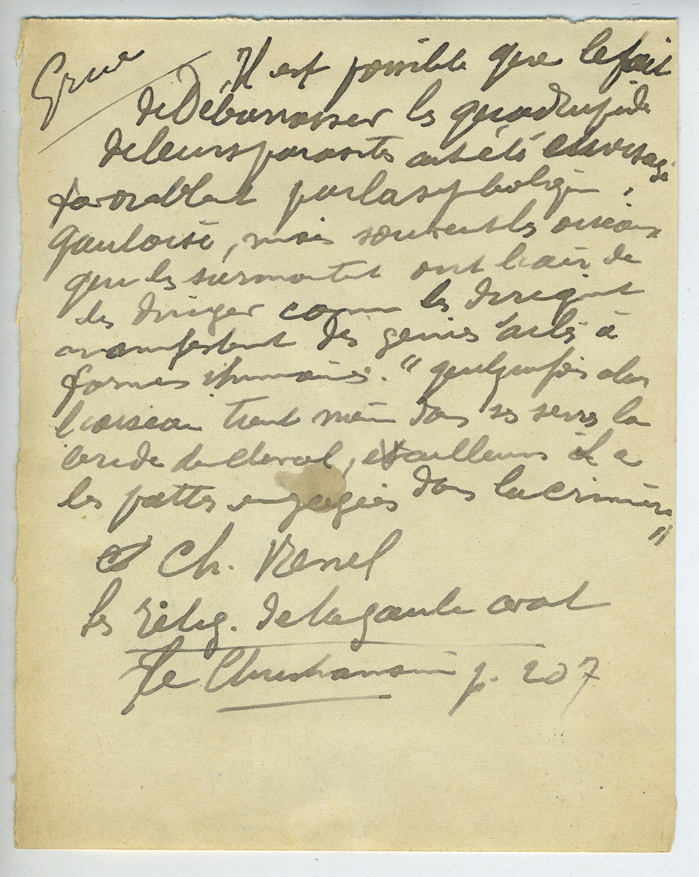 Grue
Il est possible que le fait
de Débarrasser les quadrupèdes
de leurs parasites ait été envisagé
favorablemt par la symboliqu
gauloise, mais souvent les oiseaux
qui les surmontent ont l'air de
les diriger comme les dirigent
manifestemt des génies ailés à
formes humaines. " quelquefois alors
l'oiseau tient même dans ses serres la
bride du cheval, et ailleurs il a
les pattes engagées dans la crinière
"
Ch. Renel
les Relig. de la gaule avat
le Christianisme p. 207